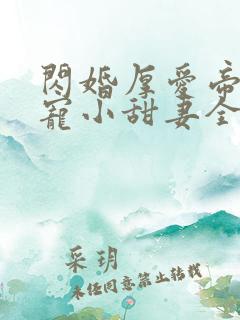 閃婚厚愛帝
寵小甜妻全
采玥
未经同意禁止转载